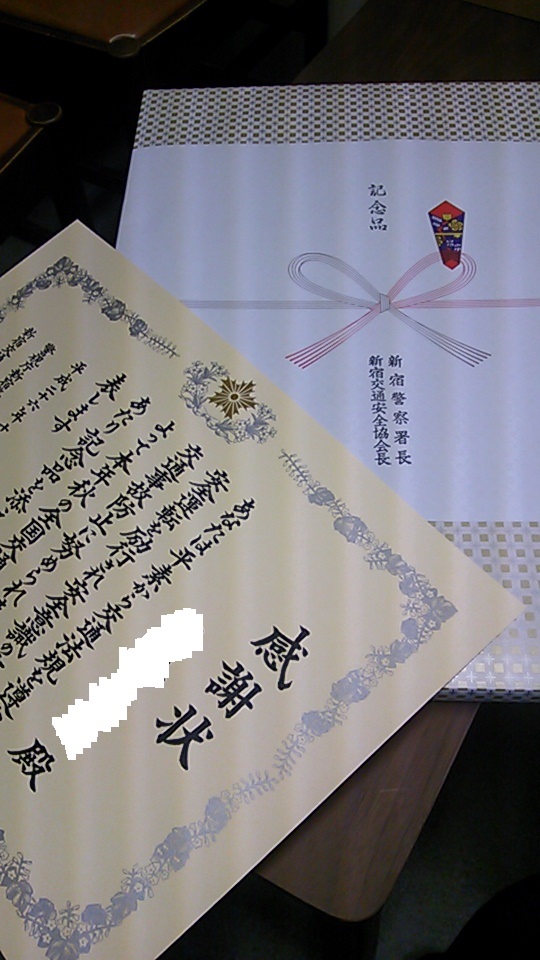 記念品
新宿警察署長
新宿交通安全協会長
感謝状
殿
あなたは平素から交通法規を遵
安全運転を励行され安全意識の
交通事故防止に努められ
よって本年秋の全国交通
あたり記念品を添
表します
平成二十六年
警視庁新宿
新宿交